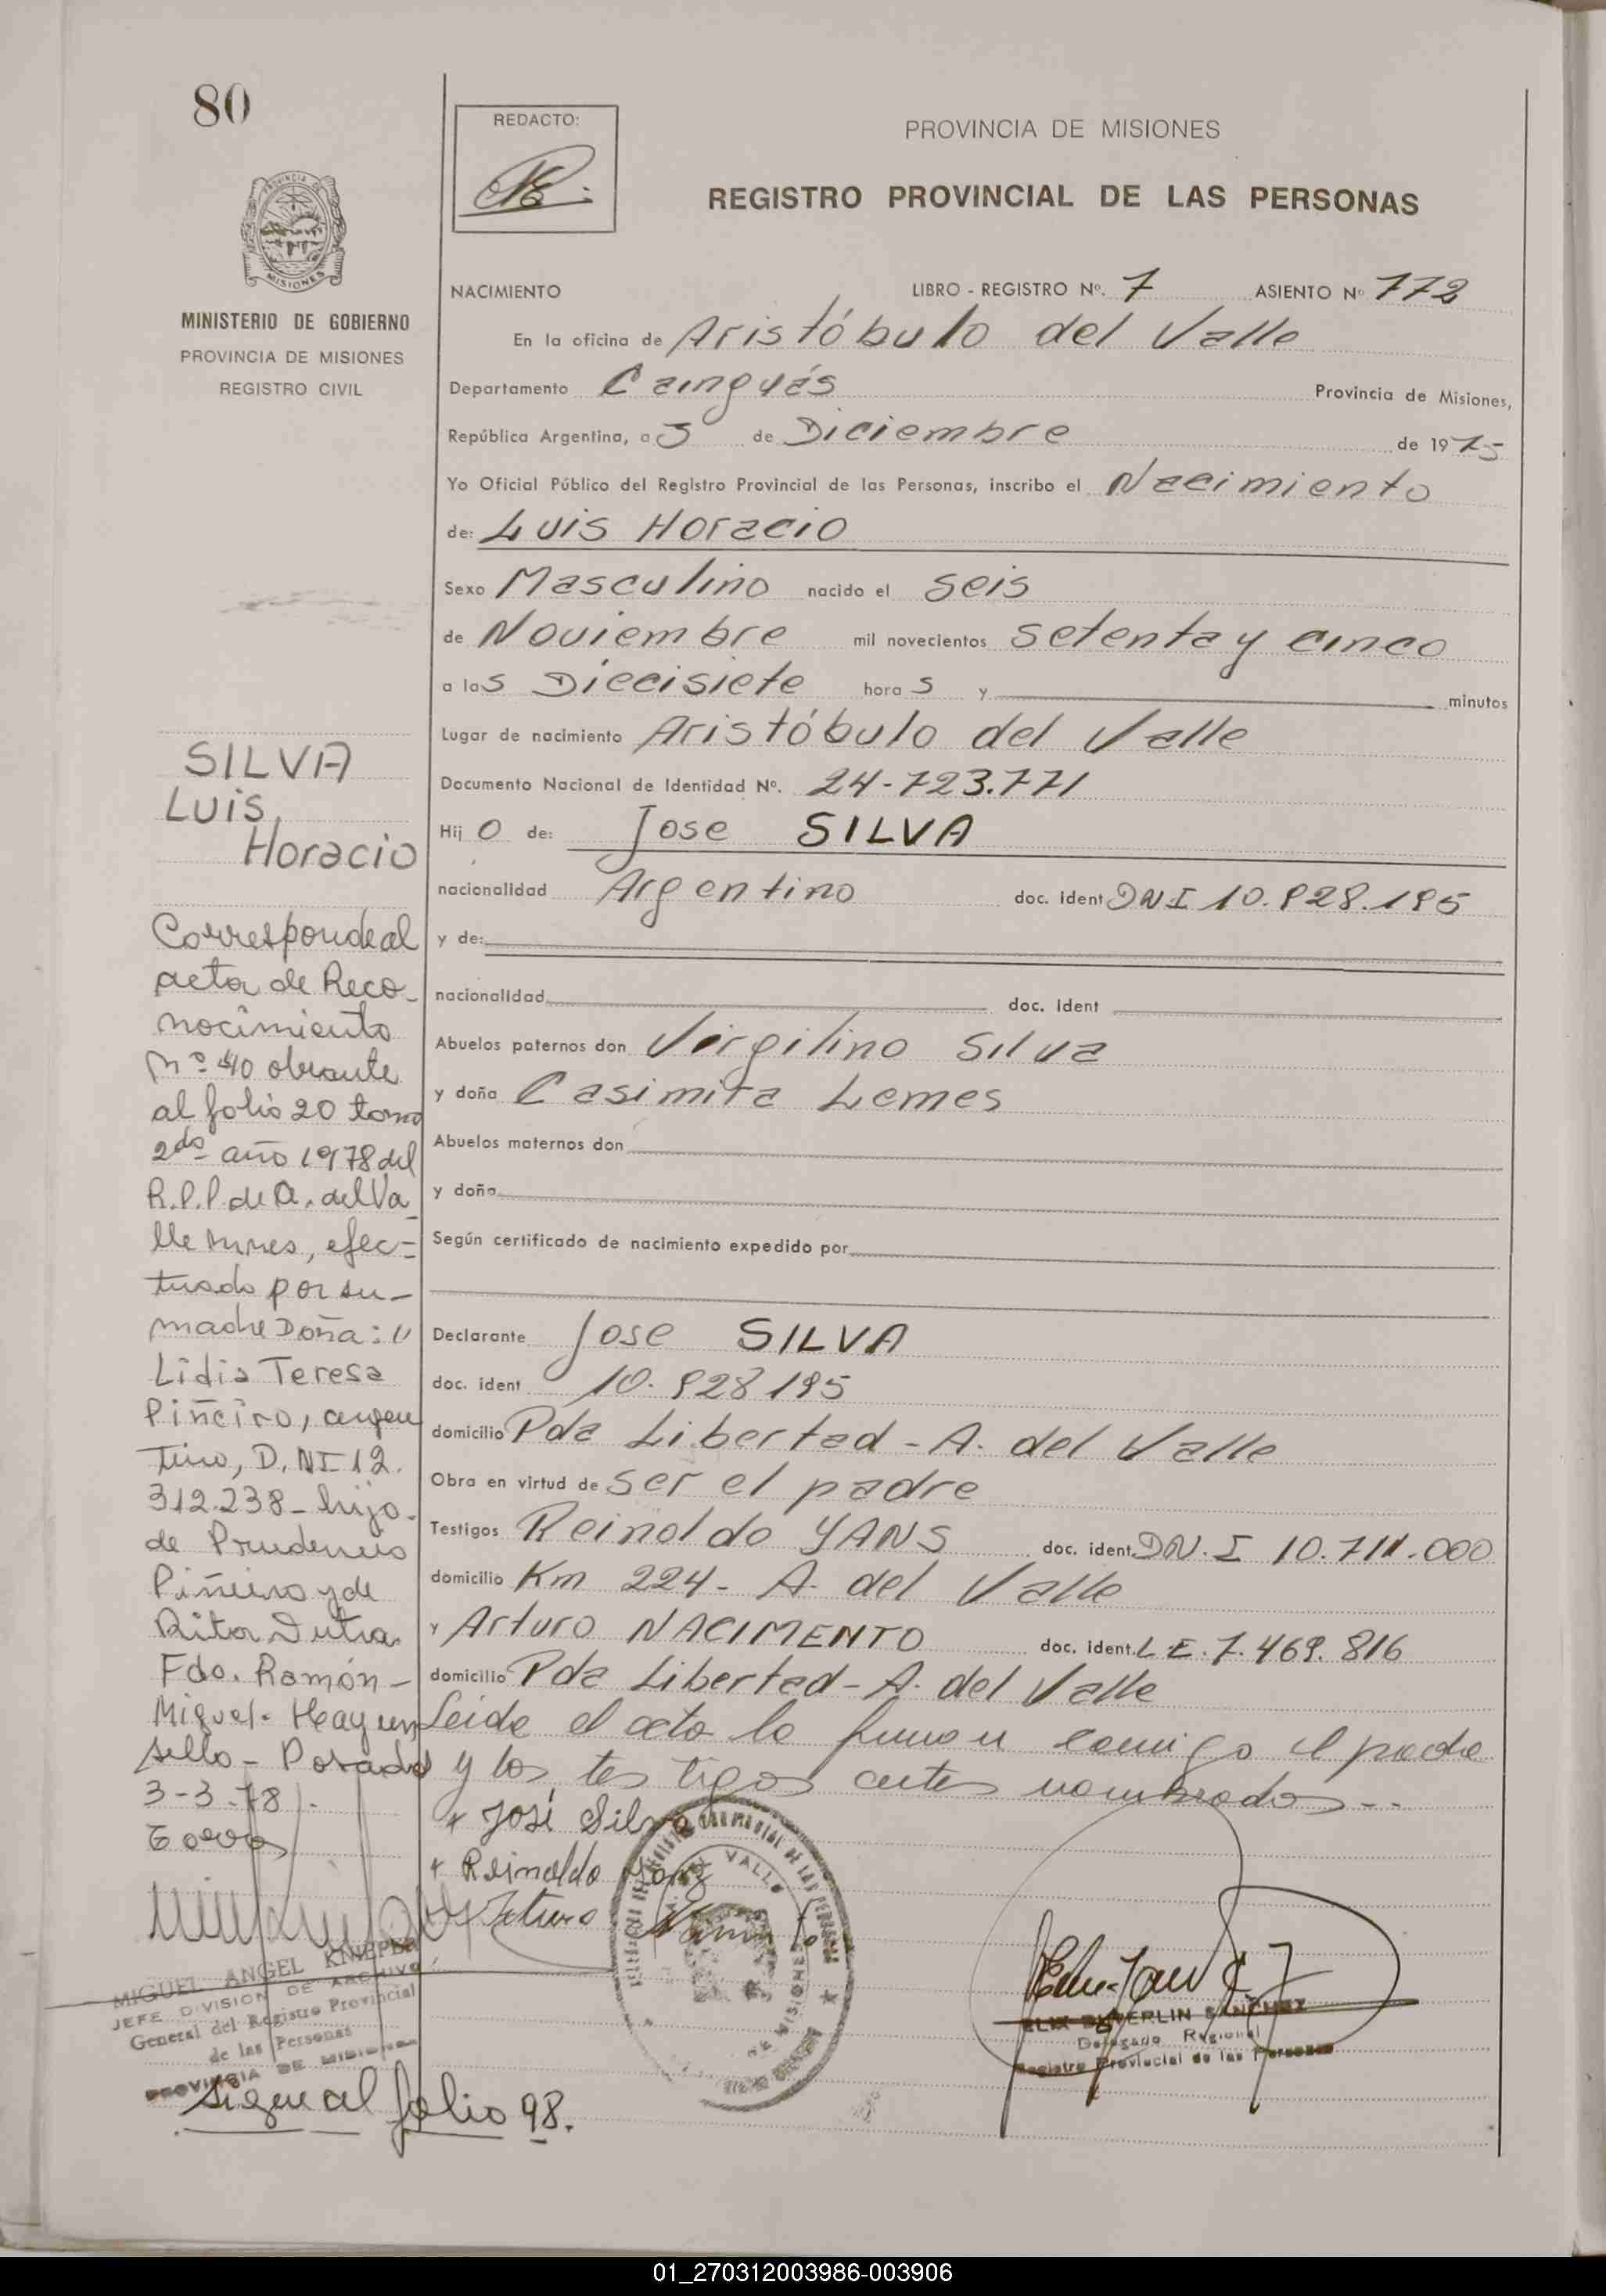 80
REDACTO:
PROVINCIA DE MISIONES
REGISTRO PROVINCIAL DE LAS PERSONAS
PROVINCIA DE
MISIONES
MINISTERIO DE GOBIERNO
PROVINCIA DE MISIONES
REGISTRO CIVIL
NACIMIENTO LIBRO - REGISTRO Nº. 7 ASIENTO Nº 772
En la oficina de Aristóbulo del Valle
Departamento Cainguás Provincia de Misiones,
República Argentina, a 3 de Diciembre de 1975
Yo Oficial Público del Registro Provincial de las Personas, inscribo el Nacimiento
de: Luis Horacio
Sexo Masculino nacido el seis
de Noviembre mil novecientos setenta y cinco
a las Diecisiete horas y minutos
Lugar de nacimiento Aristóbulo del Valle
Documento Nacional de Identidad Nº. 24-723.771
Hijo de: Jose SILVA
nacionalidad Argentino doc. ident DNI 10.828.195
y de:
nacionalidad doc. ident
Abuelos paternos don Virgilino Silva
y doña Casimira Lemes
Abuelos maternos don
y doña
Según certificado de nacimiento expedido por
Declarante Jose SILVA
doc. ident 10.828195
domicilio Pda Libertad - A. del Valle
Obra en virtud de ser el padre
Testigos Reinoldo YANS doc. ident. DN.I 10.711.000
domicilio Km 224- A. del Valle
y Arturo NACIMENTO doc. ident. L.E. 7.469.816
domicilio Pda Libertad - A. del Valle
Leida el acta la firman conmigo el padre
y los testigos antes nombrados--
x José Silva
x Reinoldo Yanz
Arturo
SILVA
Luis,
Horacio
Corresponde al
acta de Reco-
nocimiento
Nº 40 obrante
al folio 20 tomo
2do año 1978 del
R.P.P. de A. del Va
lle Mnes, efec=
tuado por su-
madre Doña:
Lidia Teresa
Piñeiro, argen
tina, D.NI 12.
312.238- hija-
de Prudencio
Piñeiro y de
Rita Dutra.
Fdo. Ramón-
Miguel- Hay un
sello- Posadas
3-3-78.-
MIGUEL ANGEL KNIEPER
JEFE DIVISION DE ARCHIVO
General del Registro Provincial
de las Personas
PROVINCIA DE MISIONES
Sigue al folio 98.
BERLIN SANCHEZ
Delegado Regional
Registro Provincial de las Personas
01_270312003986-003906